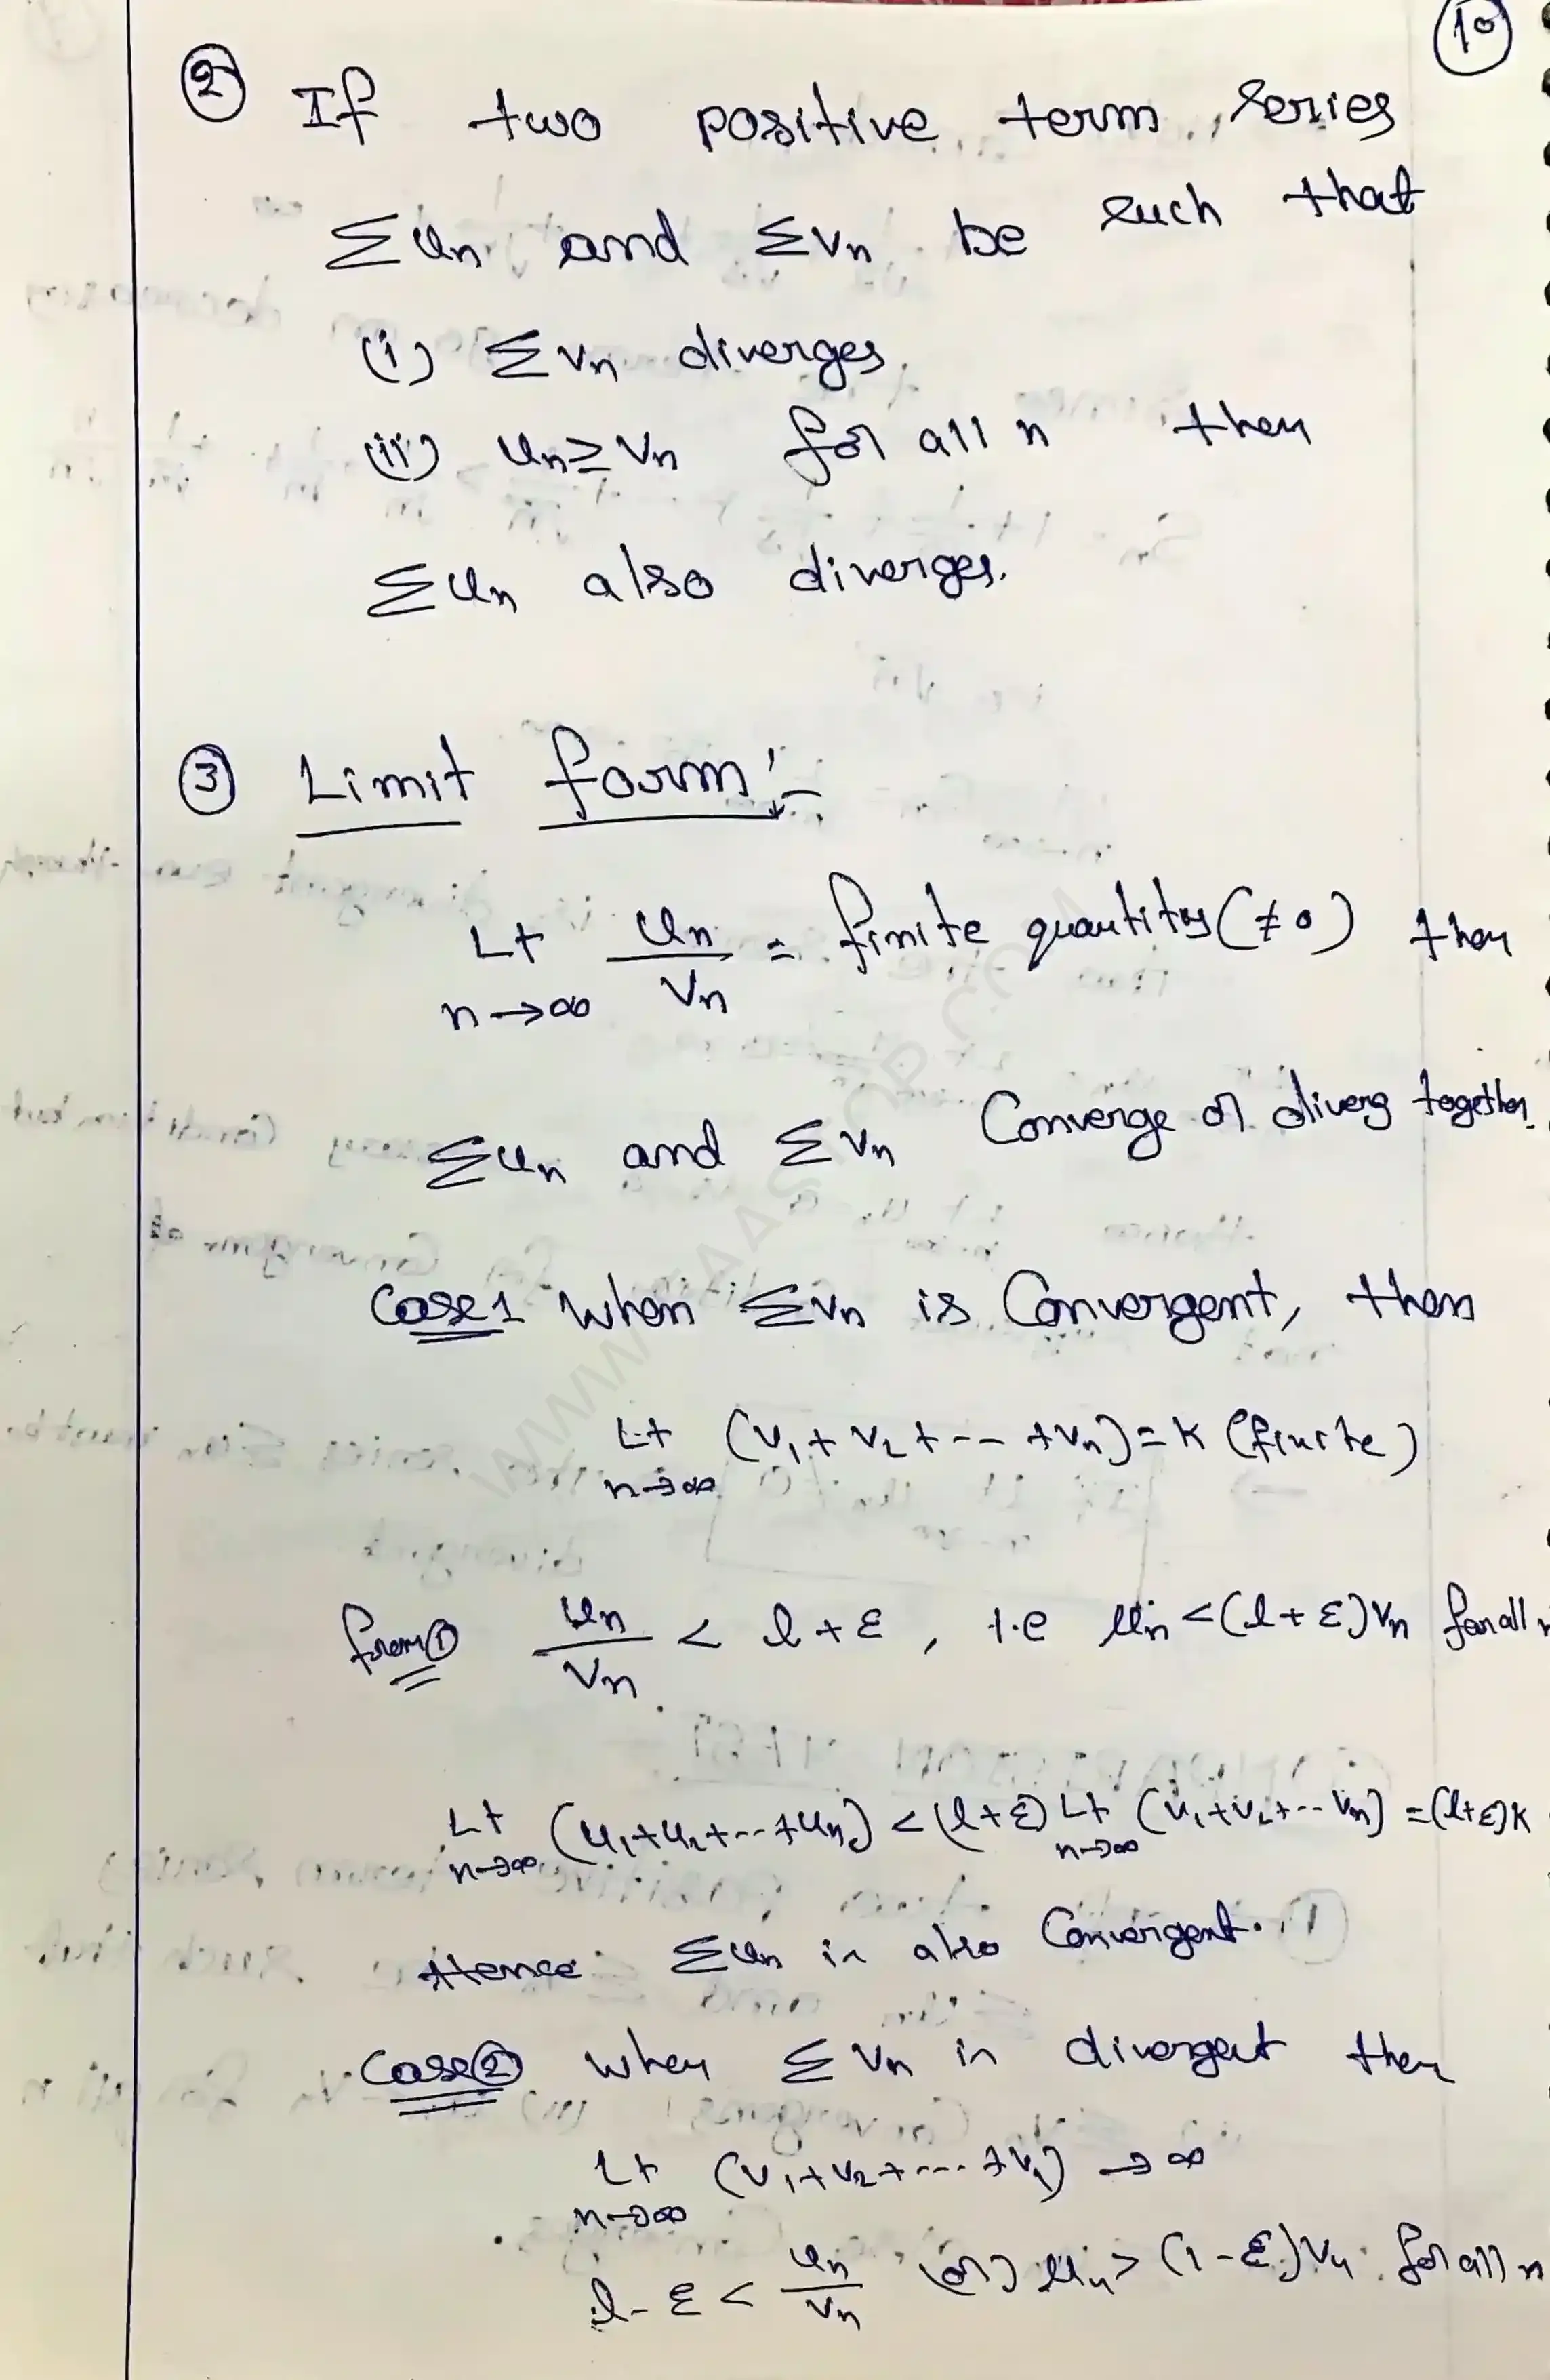 10
② If two positive term series
Σun and Σvn be such that
(i) Σvn diverges.
(ii) un ≥ vn for all n then
Σun also diverges.
③ Limit form:-
Lt n→∞ un/vn = finite quantity (≠0) then
Σun and Σvn Converge or diverg together.
Case 1 When Σvn is Convergent, then
Lt n→∞ (v1 + v2 + -- +vn) = K (finite)
from① un/vn < l + ε , i.e un < (l + ε)vn for all n
Lt n→∞ (u1+u2+--+un) < (l+ε) Lt n→∞ (v1+v2+--vn) = (l+ε)k
Hence Σun is also Convergent.
Case② when Σvn is divergent then
Lt n→∞ (v1+v2+---+vn) → ∞
l - ε < un/vn (or) un > (l - ε)vn for all n
WWW.